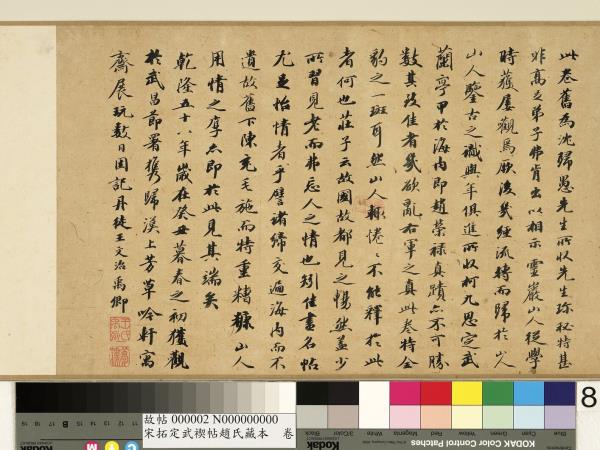 此卷舊為沈歸愚先生所收先生珍秘特甚
非高足弟子弗肯出以相示靈巖山人從學
時獲屢觀焉厥後幾經流轉而歸於山人
山人鑒古之識與年俱進所收柯九思定武
蘭亭甲於海內即趙榮祿真蹟亦不可勝
數其致佳者幾欲亂右軍之真此卷特全
豹之一斑耳然山人輙惓惓不能釋於此
者何也莊子云故國故都見之暢然蓋少
所習見老而弗忘人之情也矧佳畫名帖
尤足怡情者乎譬諸締交遍海內而不
遺故舊下陳充毛施而特重糟糠山人
用情之厚亦即於此見其端矣
乾隆五十八年歲在癸丑暮春之初獲觀
於武昌節署攜歸溪上芳草吟軒寓
齋展玩數日因記丹徒王文治禹卿
故帖 000002 N000000000
宋拓定武禊帖趙氏藏本 卷
8
KODAK Color Control Patches
Kodak
Blue
Cyan
Green
Yellow
Red
Magenta
White
3/Color
Black
B
M
C